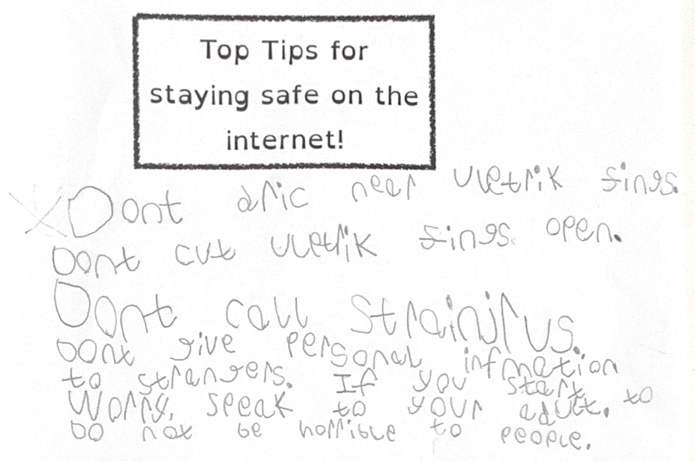 Top Tips for
staying safe on the
internet!
Dont dric near vletrik fings.
Dont cut vletrik fings open.
Dont call strainjrus.
Dont give personal infmation
to strangers. If you start to
worry, speak to your adult.
Do not be horrible to people.